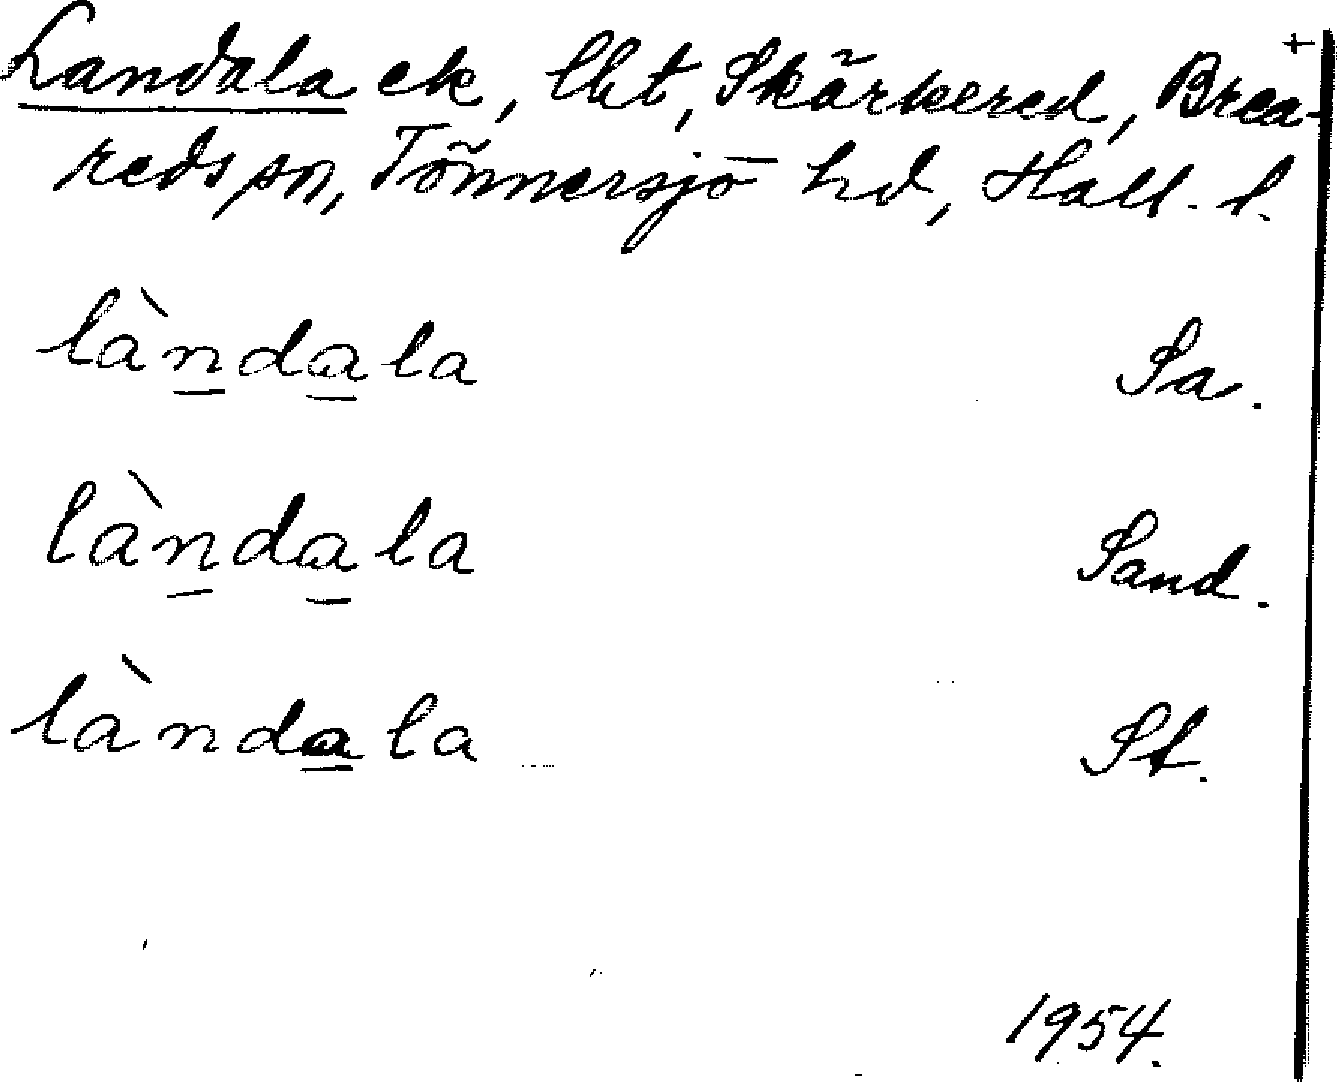 +
Landala ek, lht, Skärkered, Brea-
reds sn, Tönnersjö hd, Hall. l.
làn̲da̲la Sa.
làn̲da̲la Sand.
lànda̲la St.
1954.